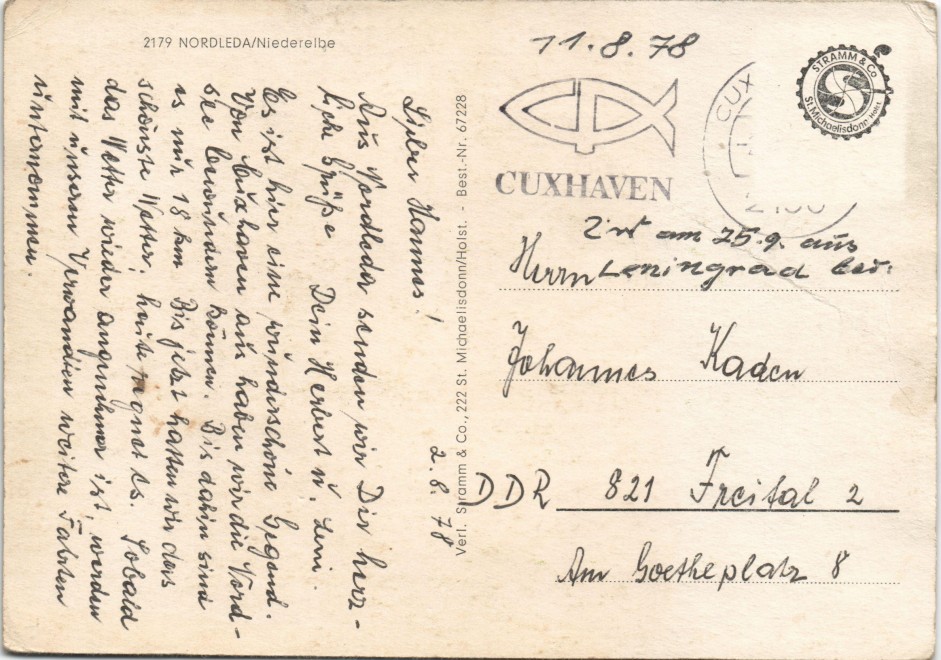 2179 NORDLEDA/Niederelbe
2.8.78
Lieber Hannes!
Aus Nordleda senden wir Dir herz-
liche Grüße Dein Herbert u. Leni.
Es ist hier eine wunderschöne Gegend.
Von Cuxhaven aus haben wir die Nord-
see bewundern können. Bis dahin sind
es nur 18 km Bis jetzt hatten wir das
schönste Wetter, heute regnet es. Sobald
das Wetter wieder angenehmer ist, werden
mit unseren Verwandten weitere Fahrten
unternommen.
Verl. Stramm & Co., 222 St. Michaelisdonn/Holst. - Best.-Nr. 67228
11.8.78
CUXHAVEN
CUX
STRAMM & Co
St. Michaelisdonn Holst.
am 25.9. aus
Leningrad
Herrn
Johannes Kaden
DDR 821 Freital 2
Am Goetheplatz 8